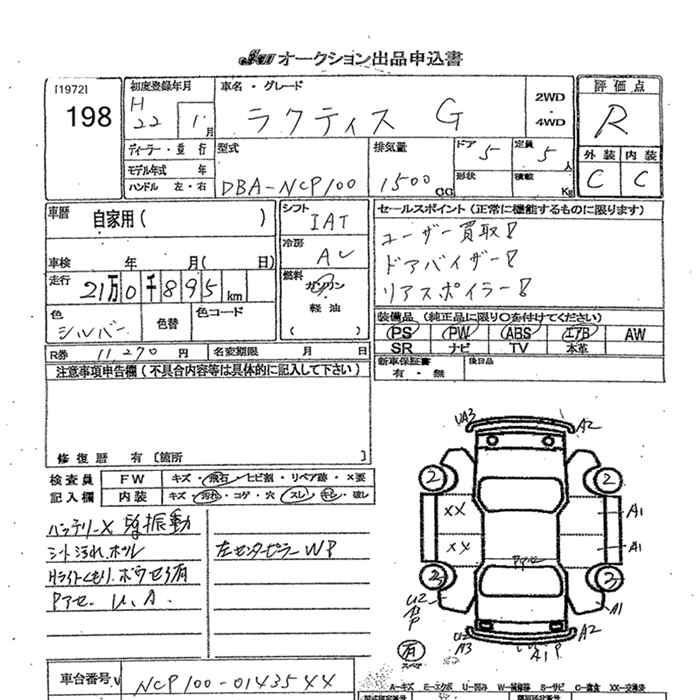 JU オークション出品申込書
[1972]
198
初度登録年月
H
22 1 月
車名・グレード
ラクティス G
2WD
・
4WD
評価点
R
外装 内装
C C
ディーラー・並行
モデル年式 年
ハンドル 左・右
型式
DBA-NCP100
排気量
1500 CC
ドア 5
定員 5 人
形状
積載 Kg
車歴
自家用( )
車検 年 月( 日)
走行
21万0千895km
色
シルバー
色替
色コード
シフト
IAT
冷房
AC
燃料
ガソリン
軽油
( )
セールスポイント(正常に機能するものに限ります)
ユーザー買取!
ドアバイザー!
リアスポイラー!
装備品(純正品に限り○を付けてください)
PS PW ABS エアB AW
SR ナビ TV 本革
新車保証書
有・無
後日品
R券 11,270 円
名変期限 月 日
注意事項申告欄(不具合内容等は具体的に記入して下さい)
修復歴 有〔箇所 〕
検査員
記入欄
FW キズ・飛石・ヒビ割・リペア跡・X要
内装 キズ・汚れ・コゲ・穴・スレ・キレ・破レ
バッテリーX 振動
シート汚れ、
Hライトくもり、
Pアセ U.A.
左センターピラー WP
UA3 A2
2 2
XX A1
XX A1
Pアセ
2 2
U2
A3
P
A1
有
スペア
U2
A3
A1 P
A2
車台番号 NCP100-0143544
A-キズ E-エクボ U-凹み W-補修跡 S-サビ C-腐食 XX-交換済